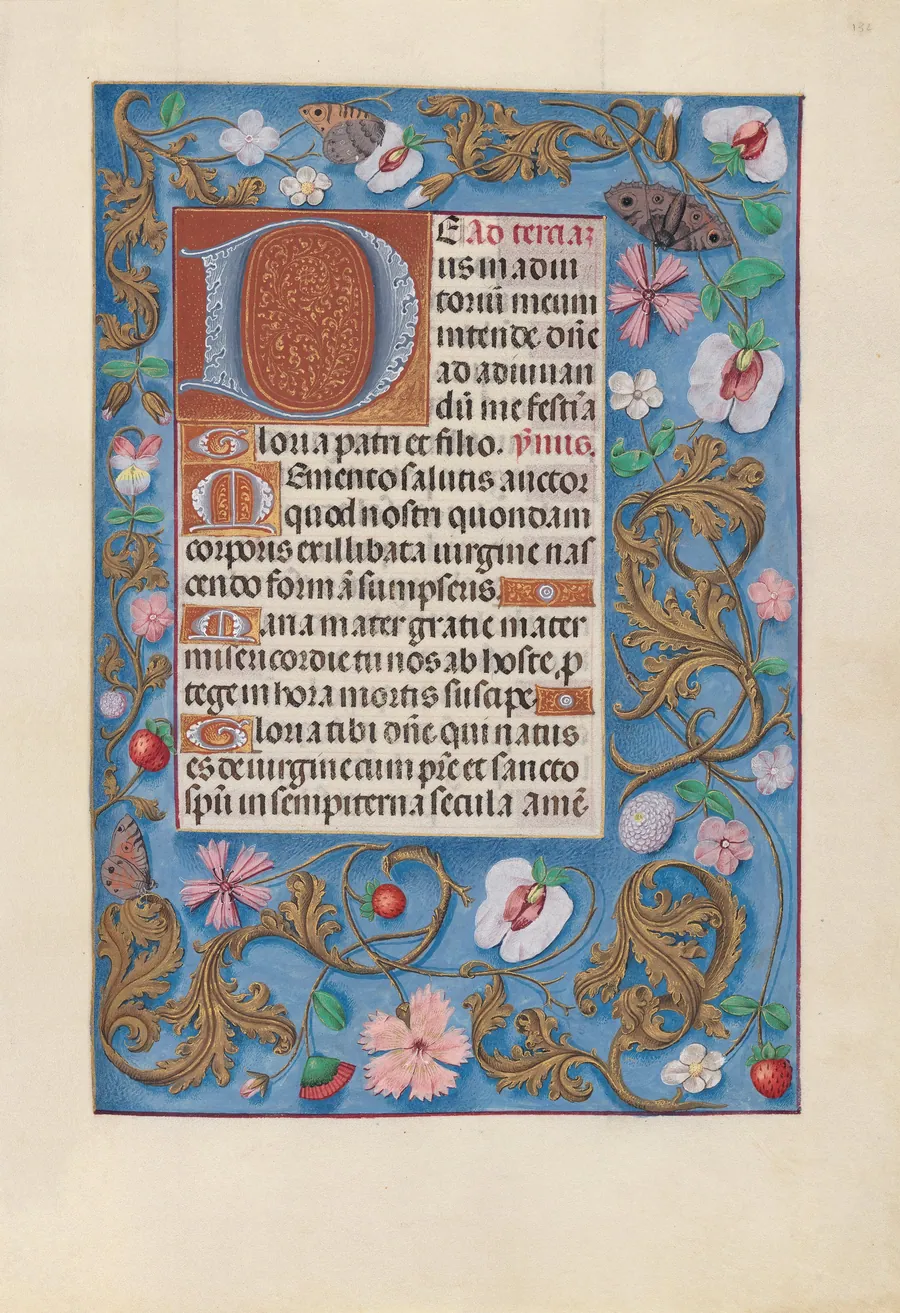 134
DE Ad terciaz
us in adiu
toriū meum
intende. dn̄e
ad adiuuan
dū me festīa
Gloria patri et filio. ẏmus.
MEmento salutis auctor
quod nostri quondam
corporis ex illibata uirgine nas
cendo formā sumpseris.
Maria mater gratie mater
misericordie tu nos ab hoste, p
tege in hora mortis suscipe
Gloria tibi dn̄e qui natus
es de uirgine cum pr̄e et sancto
spū in sempiterna secula amē